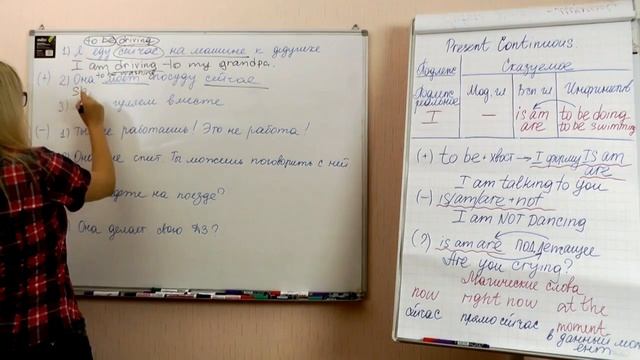 to be driving
1) Я еду сейчас на машине к дедушке
I am driving to my grandpa.
to be washing
(+) 2) Она моет посуду сейчас
3) гуляем вместе
(-) 1) не работаешь! Это не работа!
2) не спит Ты можешь поговорить с ней
на поезде?
Она делает свою ДЗ?
Present Continuous.
Подлеж Сказуемое
Мод. гл Всп гл Инфинитив
I — is am are to be doing to be swimming
(+) to be + хвост → I форму is am are
I am talking to you
(-) is/am/are + not
I am NOT DANCING
(?) is am are подлежащее
Are you crying?
Магические слова
now right now at the moment
сейчас прямо сейчас в данный момент